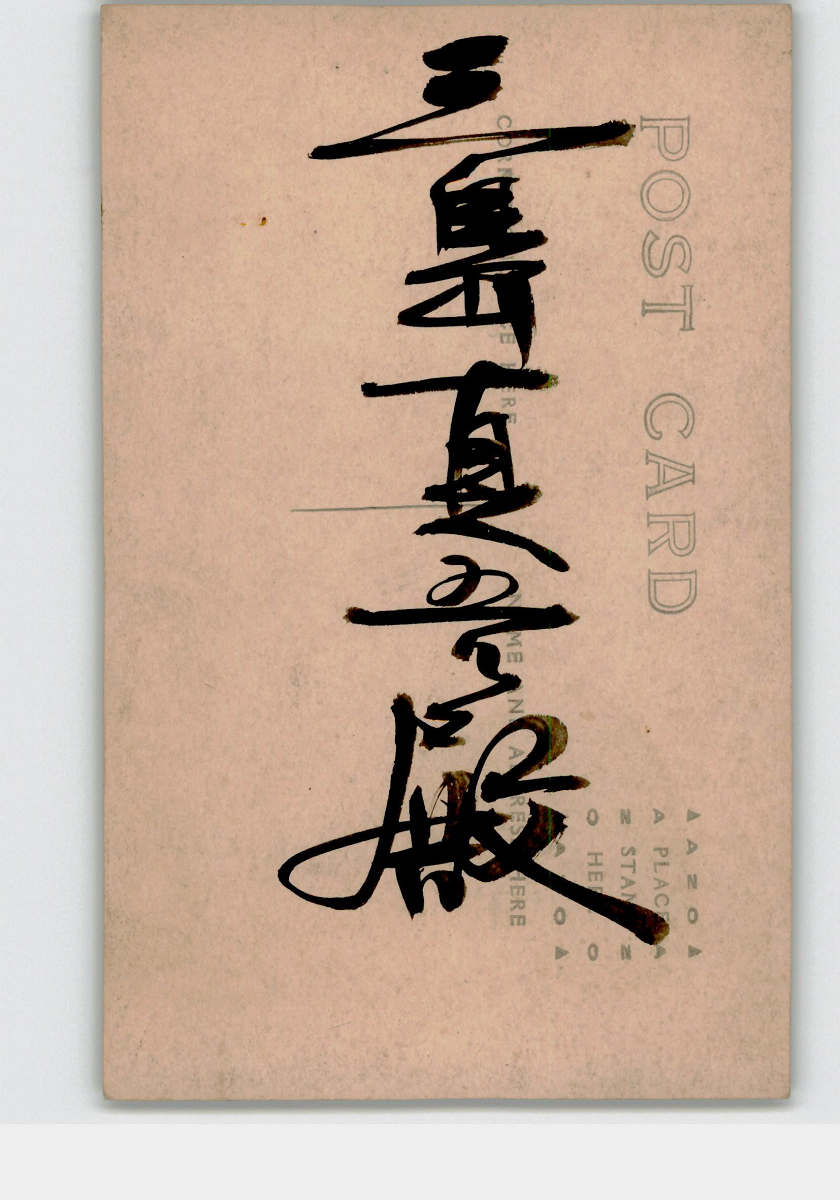 三島真吾殿
POST CARD
CORRESPONDENCE HERE
NAME AND ADDRESS HERE
AZO
PLACE
STAMP
HERE